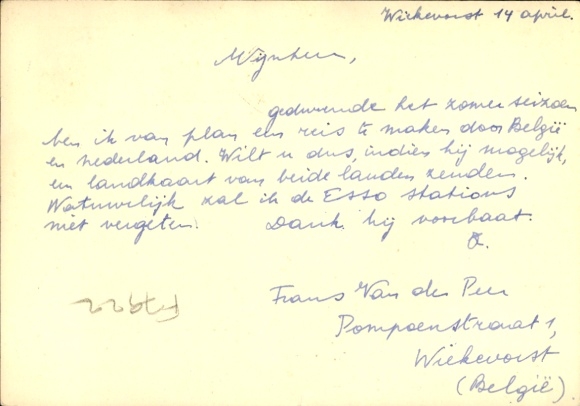 Wiekevorst 14 april.
Mijnheer,
gedurende het zomerseizoen
ben ik van plan een reis te maken door België
en nederland. Wilt u dus, indien hij mogelijk,
een landkaart van beide landen zenden.
Natuurlijk zal ik de Esso stations
niet vergeten. Dank bij voorbaat.
Frans Van der Peer
Pompoenstraat 1,
Wiekevorst
(België)